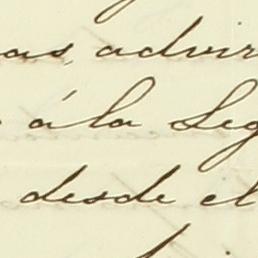 as, advir
á la Seg
desde el